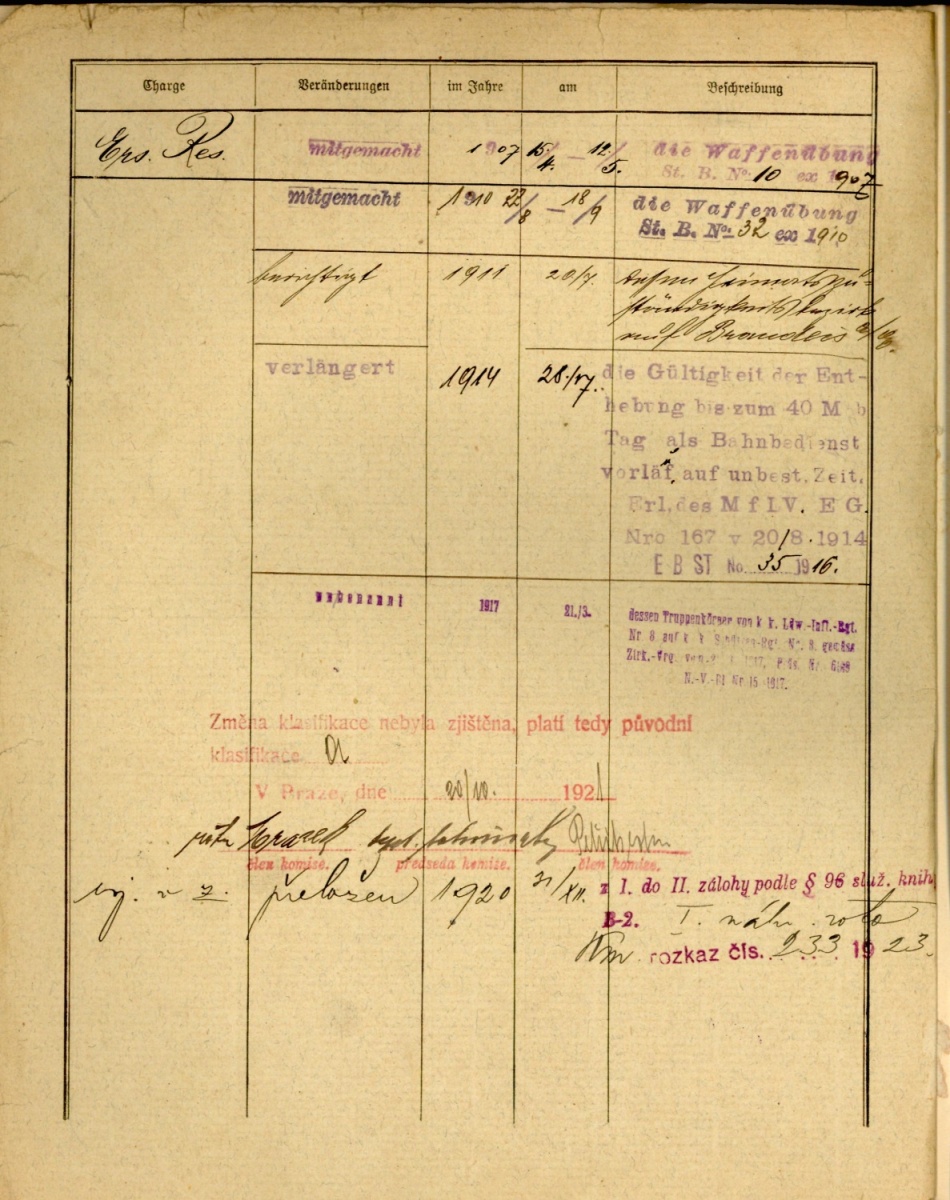 Charge Veränderungen im Jahre am Beschreibung
Ers. Res. mitgemacht 1907 15/4. – 12/5. die Waffenübung
St. B. No: 10 ex 1907
mitgemacht 1910 22/8 – 18/9 die Waffenübung
St. B. No: 32 ex 1910
berichtigt 1911 20/7. dessen Heimatszu-
ständigkeits
auf Brandeis a/E.
verlängert 1914 28./VII. die Gültigkeit der Ent-
hebung bis zum 40 Mob
Tag als Bahnbedienst
vorläuf. auf unbest. Zeit.
Erl. des M f LV. E G.
Nro 167 v 20/8. 1914
E B ST No. 35 1916.
1917 21./3. dessen Truppenkörper von k k. Ldw.-Inft.-Rgt.
Nr 8 auf k. k. Rgt. Nr. 8. gemäss
Zirk.-Vrg. 1917, Nr.
N.-V.-Bl Nr 15 1917.
Změna klasifikace nebyla zjištěna, platí tedy původní
klasifikace A
V Praze, dne 20/10. 1921
Mrazek
člen komise. předseda komise. člen komise.
voj. v z. přeložen 1920 31/XII. z I. do II. zálohy podle § 96 služ. knih
B-2. I. náhr. rota
Km. rozkaz čís. 233 1923.